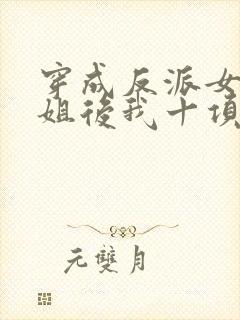 穿成反派女
姐後我十項
元雙月